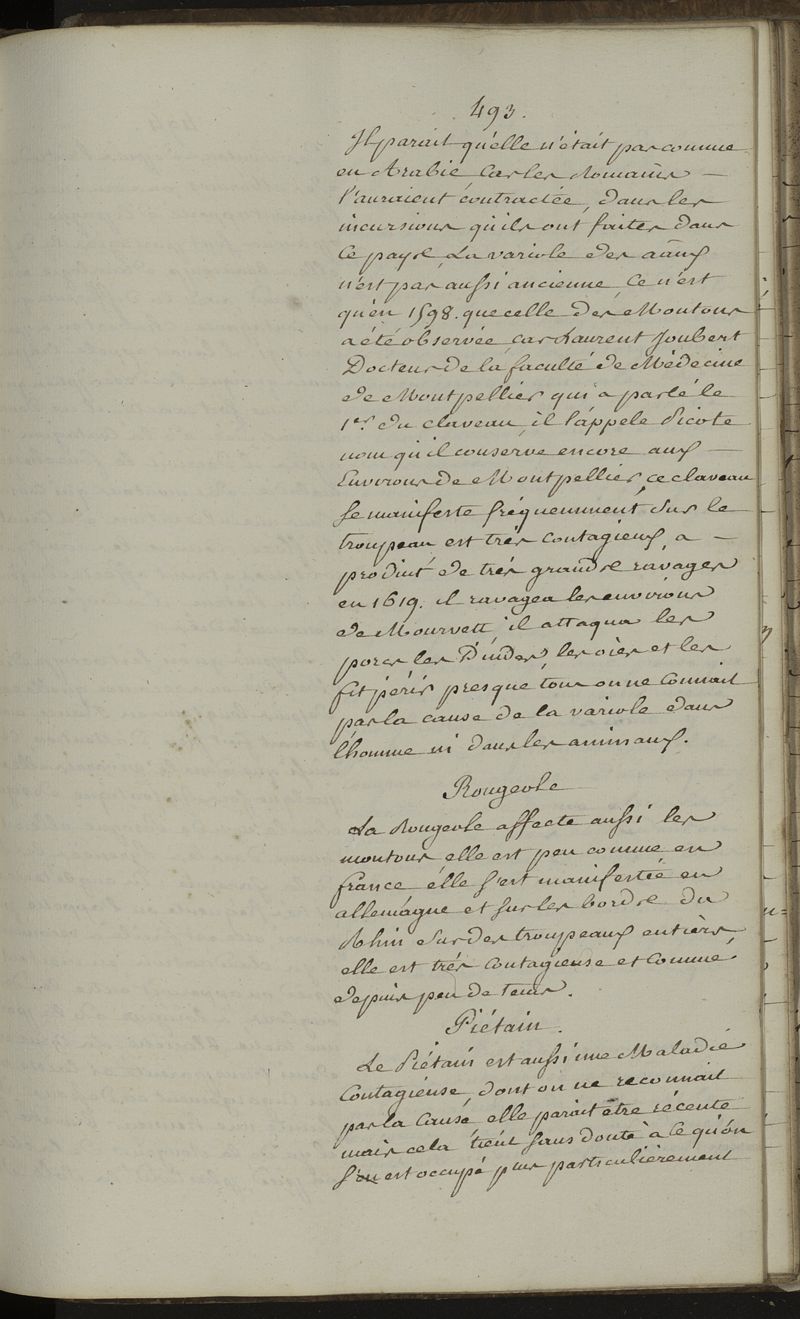 493.
Il parait qu'elle n'était pas connue
en Arabie car les Romains —
l'auraient contractée, dans les
incursions qu'ils ont faites dans
ce pays. La variole des aāux
n'est pas aussi ancienne, ce n'est
qu'en 1598. que celle des Moutons
a été observée, car Laurent Joubert
Docteur de la faculté de Médecine
de Montpellier qui a parlé le
1er. du claveau, il l'appele Picote
nom qu'il conserve encore aux —
Environs de Montpellier, ce claveau
se manifeste fréquemment sur le
troupeau est très contagieux, a —
produit de très grands ravages
en 1619. il ravagea les environs
de il attaqua les
porcs les Dindes, les oies et les
fit périr presque tous on ne connait
pas la cause de la variole dans
l'homme ni dans les animaux.
Rougeole
La Rougeole affecte aussi les
moutons elle est peu connue en
france elle s'est manifestée en
allemagne et sur les bords du
Rhin sur des troupeaux entièrs
elle est très contagieuse et connue
depuis peu de tems.
Piétain.
Le Piétain est aussi une Maladie
Contagieuse, dont on ne reconnait
pas la Cause elle parait être récente
mais cela tient sans doute à ce qu'on
s'en est occupé plus particulièrement